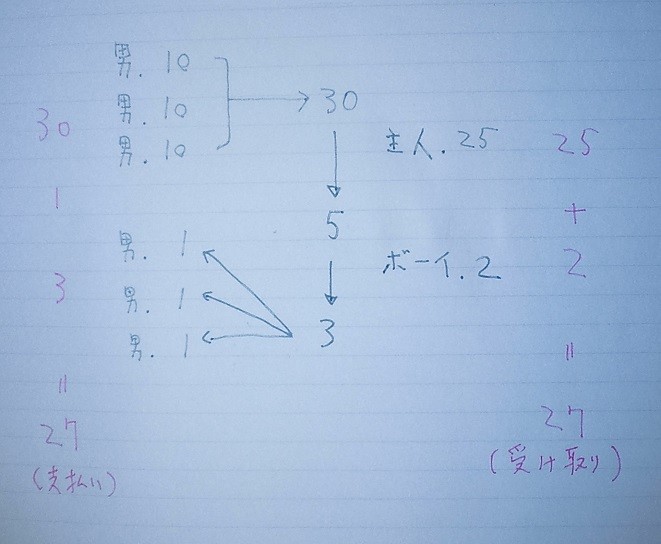 男. 10
男. 10
男. 10
30
主人. 25
5
ボーイ. 2
3
男. 1
男. 1
男. 1
30
|
3
||
27
(支払い)
25
+
2
||
27
(受け取り)